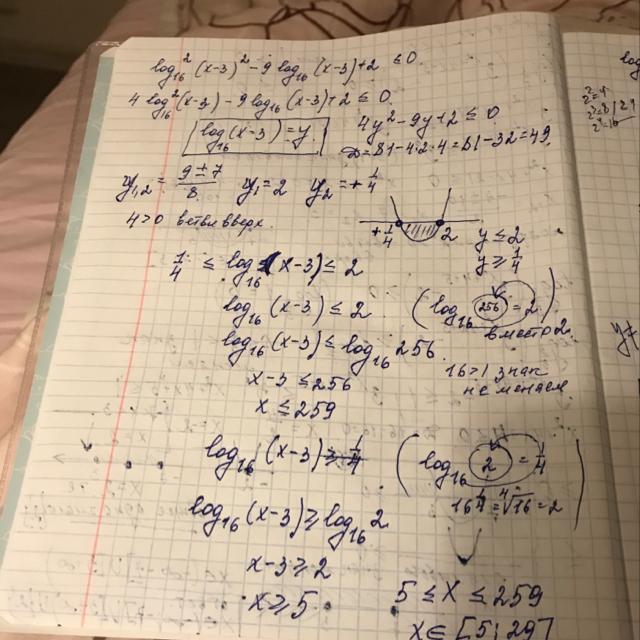 log₁₆²(x-3)² - 9 log₁₆(x-3) + 2 ≤ 0
4 log₁₆²(x-3) - 9 log₁₆(x-3) + 2 ≤ 0
log₁₆(x-3) = y
4y² - 9y + 2 ≤ 0
D = 81 - 4·2·4 = 81 - 32 = 49
y₁,₂ = (9 ± 7)/8 y₁ = 2 y₂ = + 1/4
4>0 ветви вверх.
+1/4 2
y ≤ 2
y ≥ 1/4
1/4 ≤ log₁₆(x-3) ≤ 2
log₁₆(x-3) ≤ 2
(log₁₆ 256 = 2)
вместо 2
log₁₆(x-3) ≤ log₁₆ 256
16>1 знак
не меняем
x-3 ≤ 256
x ≤ 259
log₁₆(x-3) ≥ 1/4
(log₁₆ 2 = 1/4)
16^(1/4) = ⁴√16 = 2
log₁₆(x-3) ≥ log₁₆ 2
x-3 ≥ 2
x ≥ 5
5 ≤ x ≤ 259
x ∈ [5; 29]
log
2²=4
2³=8
2⁴=16